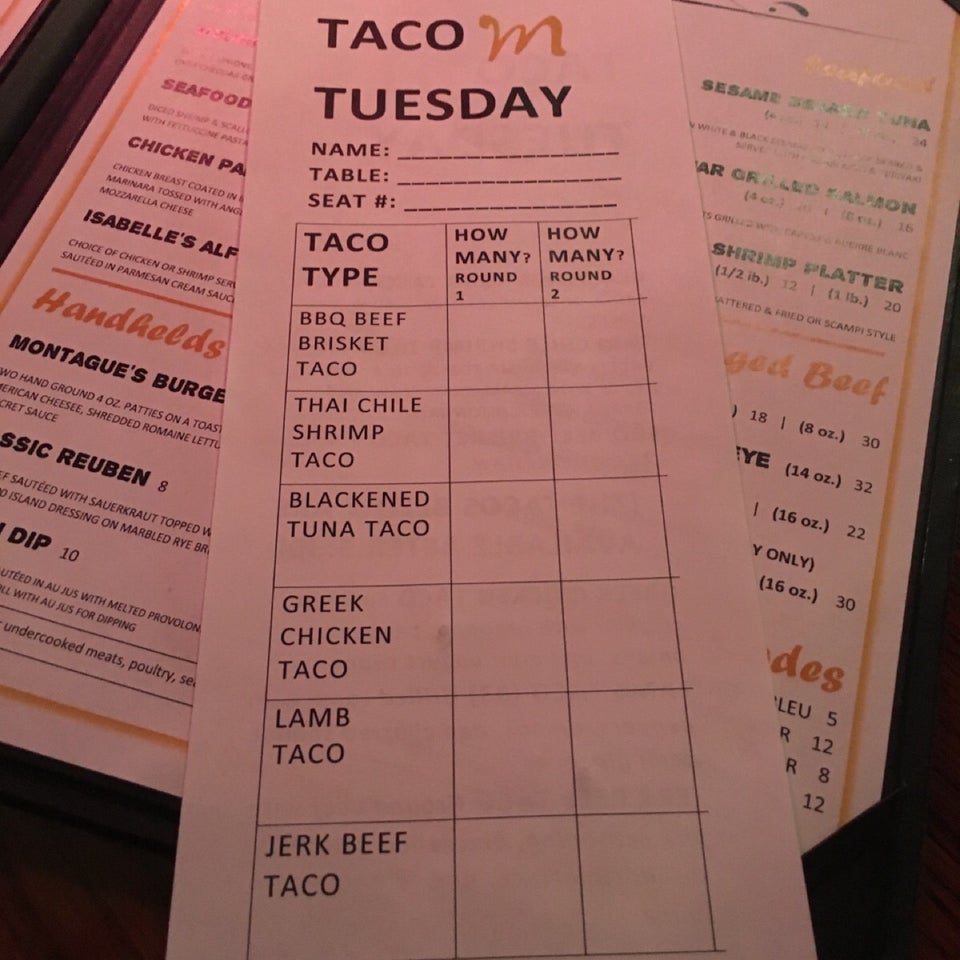 TACO m
TUESDAY
NAME: ________________
TABLE: ________________
SEAT #: ________________
TACO
TYPE
HOW
MANY?
ROUND
1
HOW
MANY?
ROUND
2
BBQ BEEF
BRISKET
TACO
THAI CHILE
SHRIMP
TACO
BLACKENED
TUNA TACO
GREEK
CHICKEN
TACO
LAMB
TACO
JERK BEEF
TACO
SEAFOOD
DICED SHRIMP &
WITH FETTUCCINE PASTA
CHICKEN PA
CHICKEN BREAST COATED IN
MARINARA TOSSED WITH ANG
MOZZARELLA CHEESE
ISABELLE'S ALF
CHOICE OF CHICKEN OR SHRIMP SER
SAUTÉED IN PARMESAN CREAM SAUC
Handhelds
MONTAGUE'S BURGE
WO HAND GROUND 4 OZ. PATTIES ON A TOAST
ERICAN CHEESEE, SHREDDED ROMAINE LETTU
CRET SAUCE
SSIC REUBEN 8
EF SAUTÉED WITH SAUERKRAUT TOPPED W
0 ISLAND DRESSING ON MARBLED RYE BR
DIP 10
UTÉED IN AU JUS WITH MELTED PROVOLON
LL WITH AU JUS FOR DIPPING
undercooked meats, poultry, se
SESAME SEARED TUNA
24
AR GRILLED SALMON
(4 oz.) | (8 oz.) 16
SHRIMP PLATTER
(1/2 lb.) 12 | (1 lb.) 20
ATTERED & FRIED OR SCAMPI STYLE
ged Beef
) 18 | (8 oz.) 30
EYE (14 oz.) 32
| (16 oz.) 22
Y ONLY)
(16 oz.) 30
des
LEU 5
R 12
R 8
12